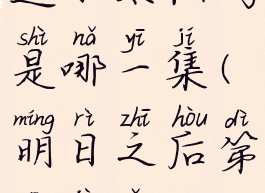 shì nǎ yī jí
是哪一集(
míng rì zhī hòu dì
明日之后第